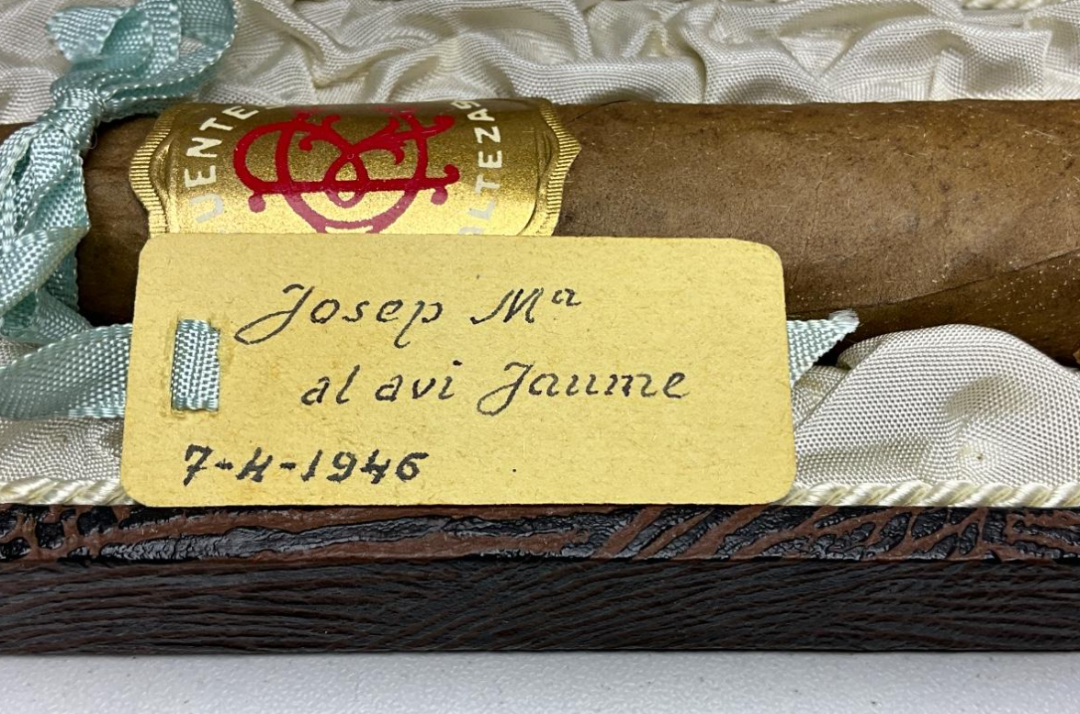 UENTE
ALTEZAS
Josep Mª
al avi Jaume
7-4-1946